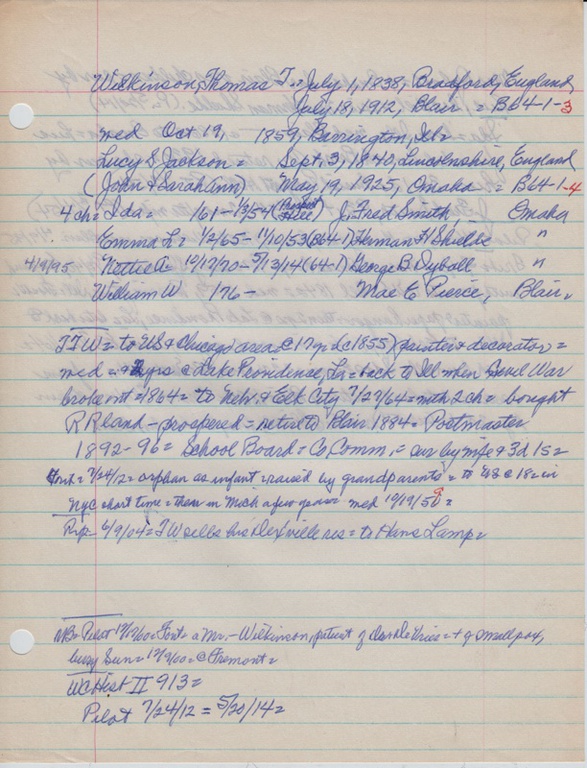 Wilkinson, Thomas T. = July 1, 1838, Bradford, England
July 18, 1912, Blair = B64-1-3
med Oct 19, 1859, Barrington, Ill=
Lucy S. Jackson = Sept. 3, 1840, Lincolnshire, England
(John & Sarah Ann) May 19, 1925, Omaha = B64-1-4
4 ch = Ida = /61 - 1/3/54 (Prospect Hill) J. Fred Smith, Omaha
Emma L = 1/2/65 - 11/10/53 (B64-1) Herman H "
4/9/95 Nettie A = 10/17/70 - 5/13/14 (64-1) George B Dyball "
William W /76 - Mae E Pierce, Blair =
TTW = to US & Chicago area @ 17 yr (c 1855) painter & decorator =
med = & yrs @ Lake Providence, La = back to Ill when Civil War
broke out = 1864 = to Nebr & Elk City 7/27/64 = with 2 ch = bought
RR land - prospered = return to Blair 1884 = Postmaster
1892-96 = School Board = Co. Comm. = sur by wife & 3d 1s =
Font = 7/24/12 = orphan as infant & raised by grandparents = to US @ 18 = in
NYC short time = then in Mich a few years med 10/19/59 =
6/9/04 = TW sells his res = to Hans Lamp =
NB = Pilot 12/12/60 = Font = a Mr. - Wilkinson, patient of = + of smallpox,
Sun = 12/9/60 = @ Fremont =
Wa Hist II 913 =
Pilot 7/24/12 = 5/20/14 =